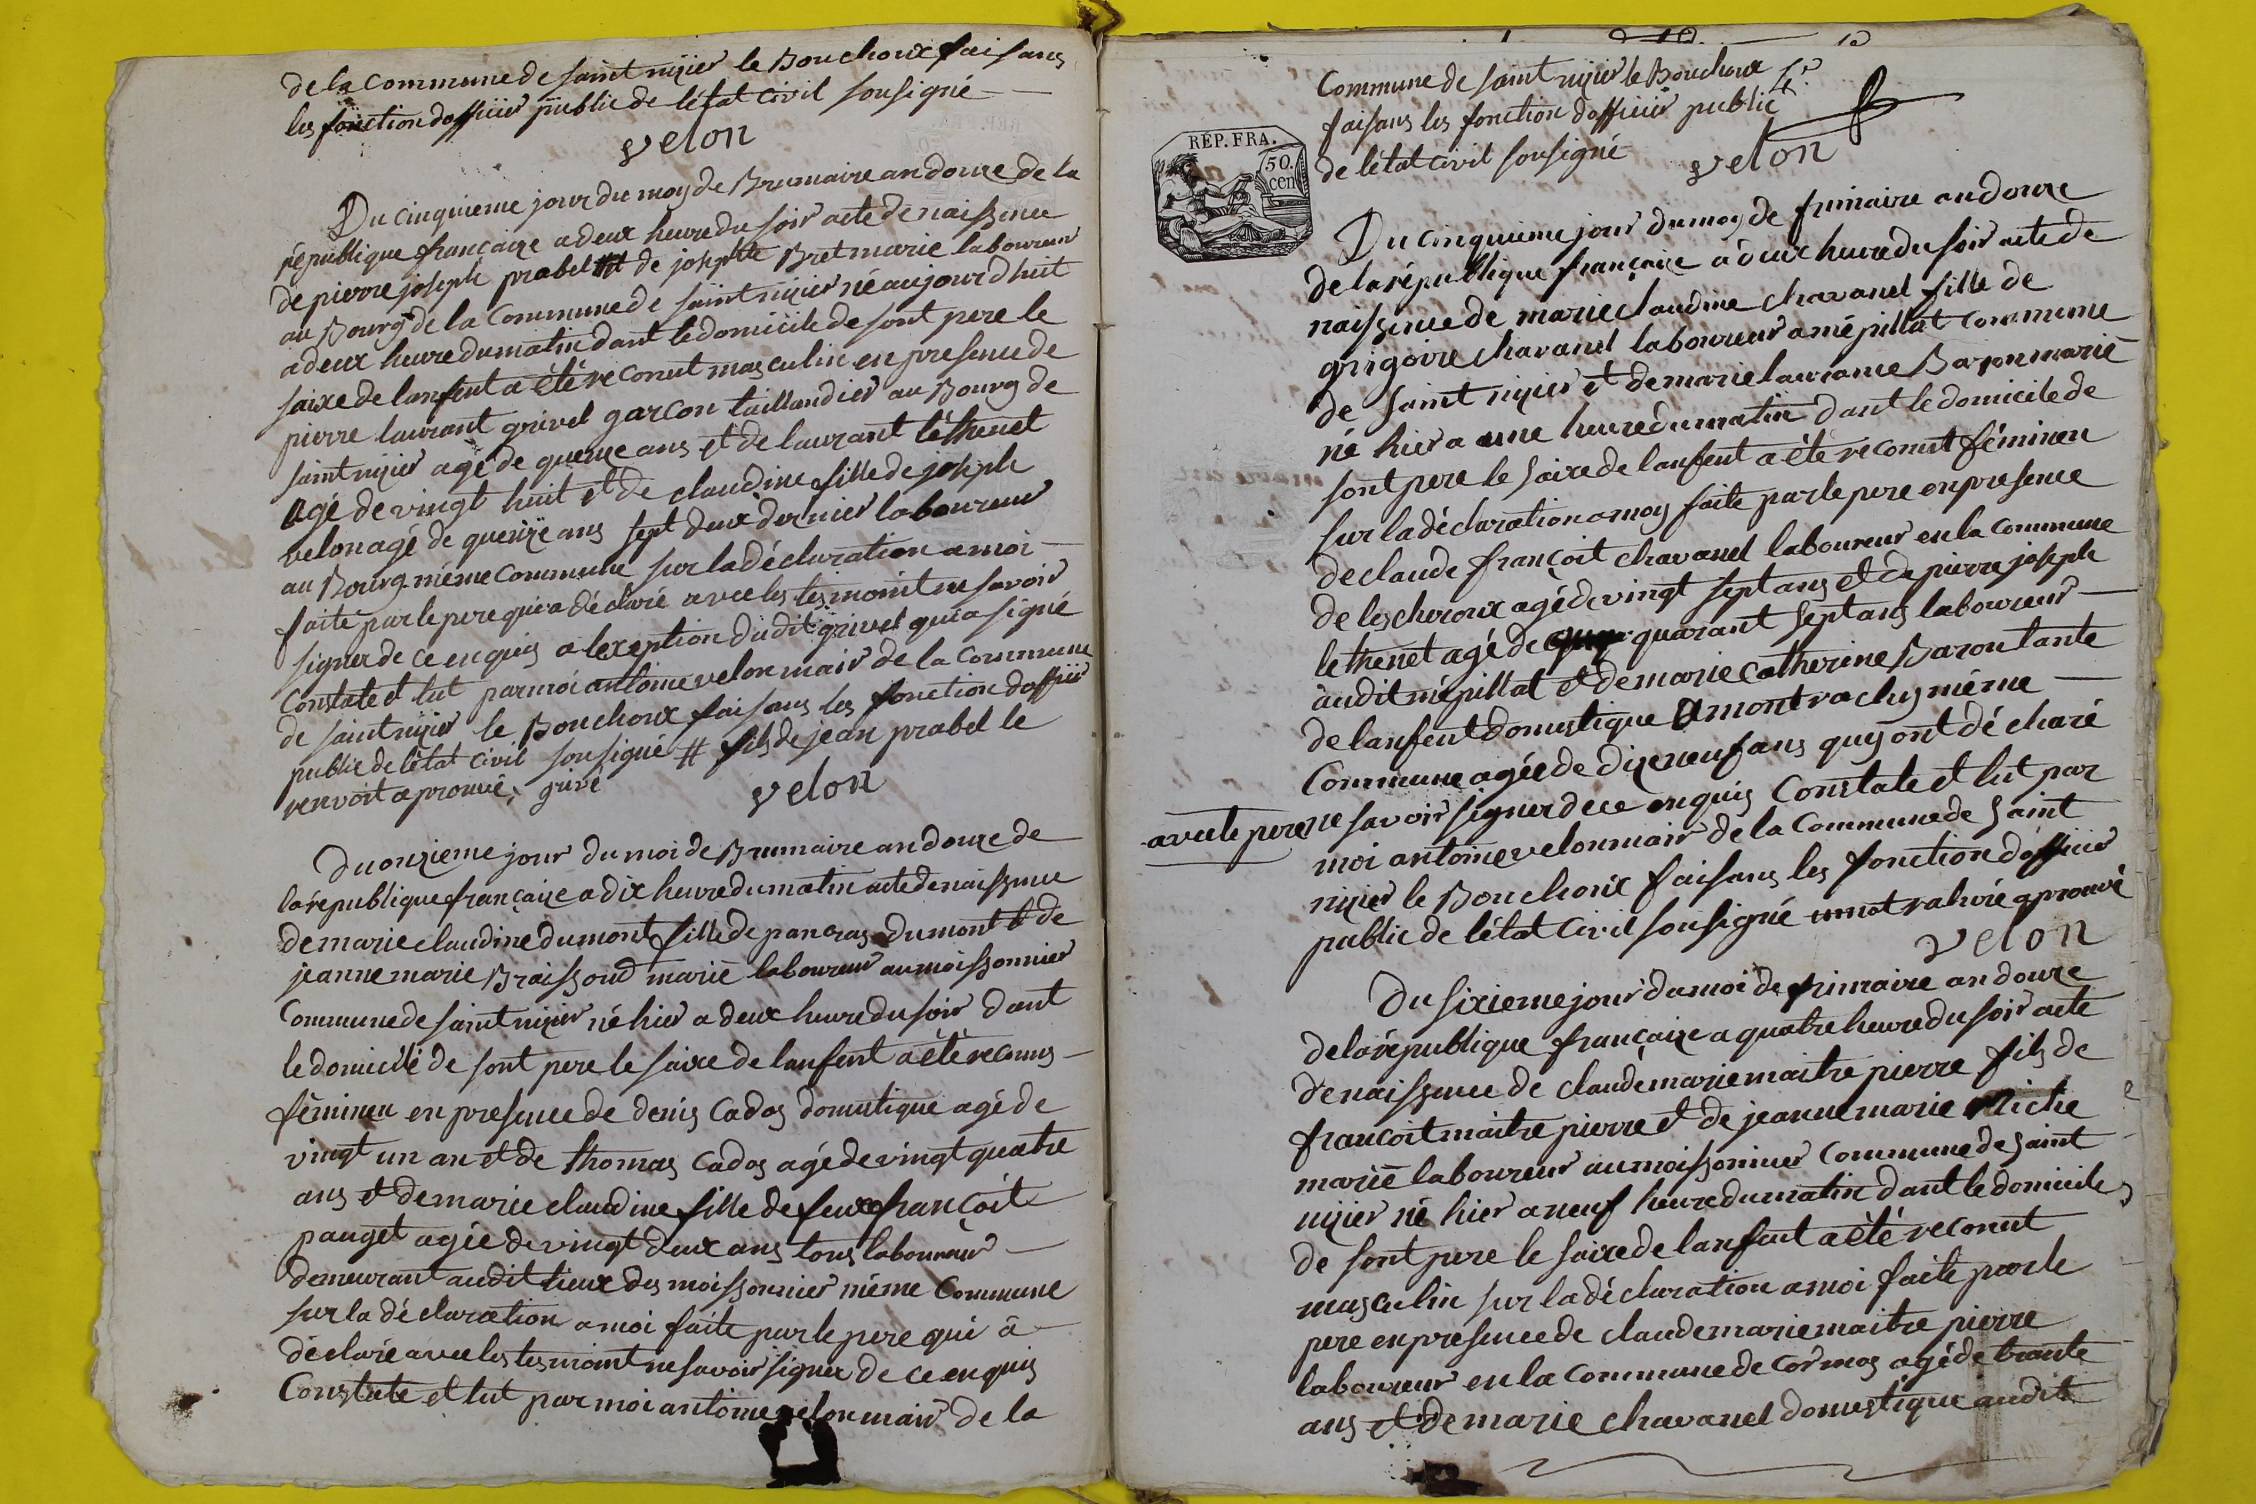 de la Commune de saint nizier le Bouchoux faisans
les fonction dofficier public de létat civil sousigné
velon
Du cinquieme jour du moy de Brumaire an douze de la
république françaize a deux heure du soir acte de naissence
de pierre joseph prabel # de josephte Bret marié laboureur
au Bourg de la Commune de saint nizier né aujourdhuit
a deux heure du matin dant le domicile de sont pere le
saixe de lanfent a été reconut masculin en presence de
pierre laurant grivel garcon taillandier au Bourg de
saint nizier agé de quenze ans et de laurant léthenet
agé de vingt huit et de claudine fille de joseph
velon agé de quenze ans sept deux dernier laboureur
au Bourg méme commune sur la déclaration a moi
faite par le pere qui a déclaré avec les tesmoint ne savoir
signer de ce enquis a lexeption dudit grivel qui a signé
Constaté et lut par moi antoine velon mair de la commune
de saint nizier le Bouchoux faisans les fonction dofficier
public de létat civil sousigné # fils de jean prabel le
renvoit aprouvé, grivé
velon
Du onzieme jour du moi de Brumaire an douze de
la république françaize a dix heure du matin acte de naissence
de marie claudine dumont fille de pancras dumont & de
jeanne marie Braissoud marié laboureur au moissonnier
Commune de saint nizier né hier a deux heure du soir dant
le domicile de sont pere le saixe de lanfent a été reconus
féminen en presence de denis Cadas domestique agé de
vingt un an et de thomas Cadas agé de vingt quatre
ans et de marie claudine fille de feux françoit
pauget agée de vingt deux ans tous laboureur
demeurant audit lieux des moissonnier méme Commune
sur la déclaration a moi faite par le pere qui a
déclaré avec les tesmoint ne savoir signer de ce enquis
Constate et lut par moi antoine velon mair de la
Commune de saint nizier le Bouchoux
faisans les fonction dofficier public
de létat civil sousigné velon
RÉP. FRA.
50.
cen
Du cinquieme jour du moy de frimaire an douze
de la république françaize a deux heure du soir acte de
naissence de marie claudine chavanel fille de
grigoire chavanel laboureur a mépillat commune
de saint nizier et de marie lauriance Baron marié
né hier a une heure du matin dant le domicile de
sont pere le saixe de lanfent a été reconut féminen
sur la déclaration a moy faite par le pere en presence
de claude françoit chavanel laboureur en la commune
de lescheroux agé de vingt sept ans et de pierre joseph
lethenet agé de quarant sept ans laboureur
audit mépillat et de marie catherine Baron tante
de lanfent domestique a montrachy méme
Commune agée de dix neuf ans quy ont décharé
avec le pere ne savoir signer de ce enquis Constate et lut par
moi antoine velon mair de la Commune de Saint
nizier le Bouchoux faisans les fonction dofficier
public de létat Civil sousigné un mot rahuré aprouvé
velon
Du sixieme jour du moi de frimaire an douze
de la république françaize a quatre heure du soir acte
de naissence de claude marie maitre pierre fils de
francoit maitre pierre et de jeanne marie Miche
marié laboureur au moissonnier Commune de Saint
nizier né hier a neuf heure du matin dant le domicile
de sont pere le saixe de lanfent a été reconut
masculin sur la déclaration a moi faite par le
pere en presence de claude marie maitre pierre
laboureur en la commune de Cormos agé de trante
ans et de marie chavanel domestique audit